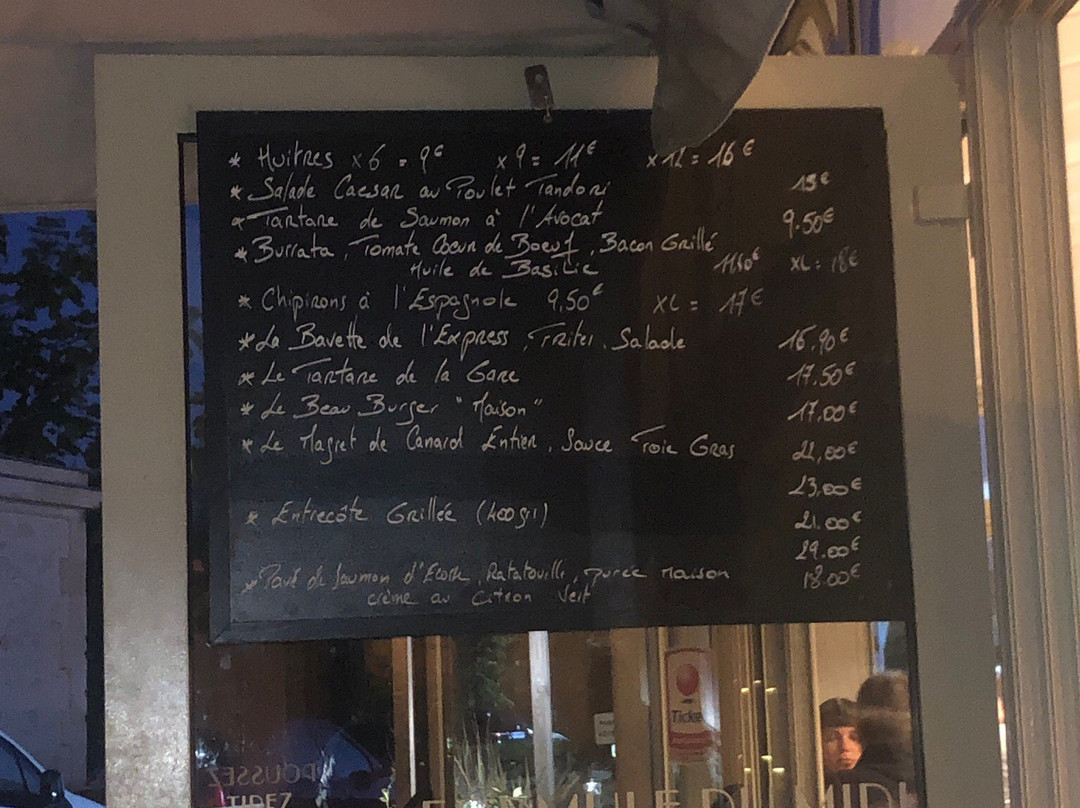 * Huîtres x6 = 9€ x9 = 11€ x12 = 16€
* Salade Caesar au Poulet Tandori 15€
* Tartare de Saumon à l'Avocat 9.50€
* Burrata, Tomate Coeur de Boeuf, Bacon Grillé
Huile de Basilic 11.50€ XL = 18€
* Chipirons à l'Espagnole 9,50€ XL = 17€
* La Bavette de l'Express, Frites, Salade 16.90€
* Le Tartare de la Gare 17.50€
* Le Beau Burger "Maison" 17.00€
* Le Magret de Canard Entier, Sauce Foie Gras 22,00€
23,00€
* Entrecôte Grillée (400gr) 21.00€
29.00€
* Pavé de Saumon d'Ecosse, Ratatouille, purée maison 18.00€
crème au Citron Vert
Ticket
POUSSEZ
TIREZ
FORMULE DU MIDI